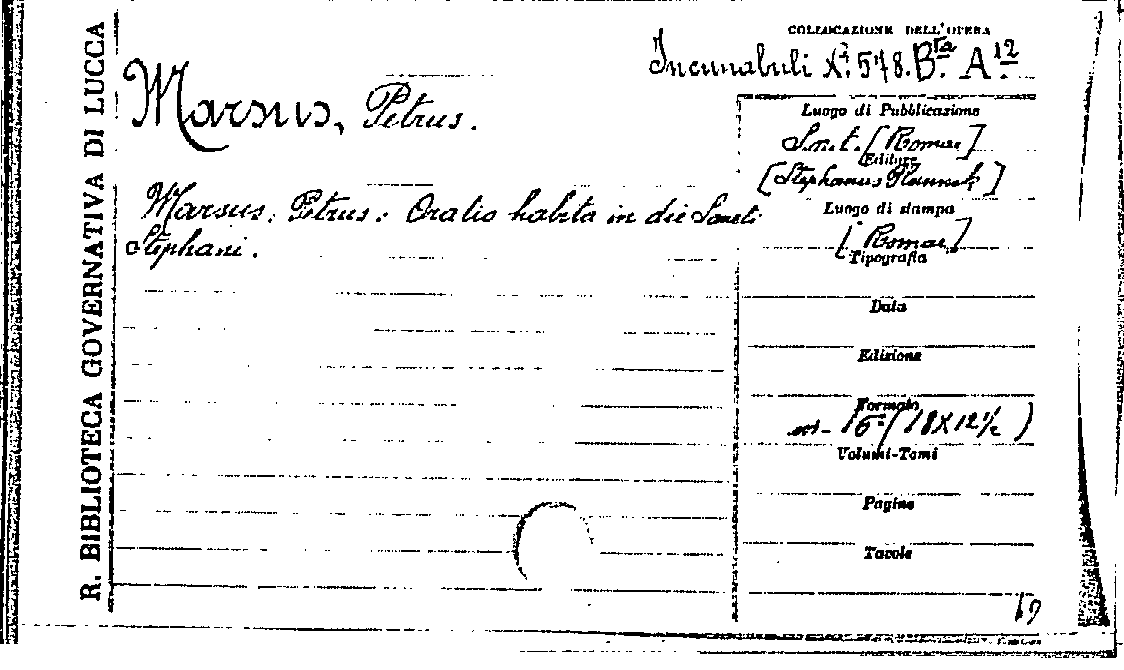 R. BIBLIOTECA GOVERNATIVA DI LUCCA
COLLOCAZIONE DELL'OPERA
Incunabuli N.° 578. B.ta A.12
Marsus, Petrus.
Luogo di Pubblicazione
S.n.t. [Romae]
Editore
[Stephanus Plannck]
Marsus, Petrus: Oratio habita in die Sancti
Stephani.
Luogo di stampa
[Romae]
Tipografia
Data
Edizione
Formato
in-16° (18X12½)
Volumi-Tomi
Pagine
Tavole